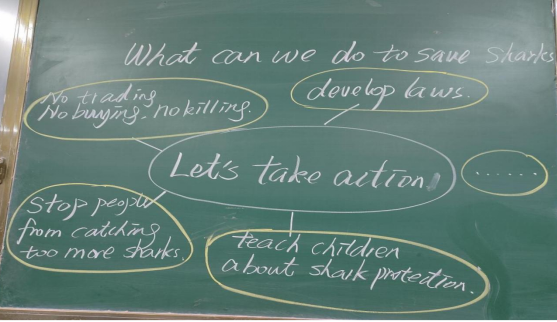 What can we do to save sharks
No trading
No buying, no killing.
develop laws.
Let's take action
......
Stop people
from catching
too more sharks.
teach children
about shark protection.